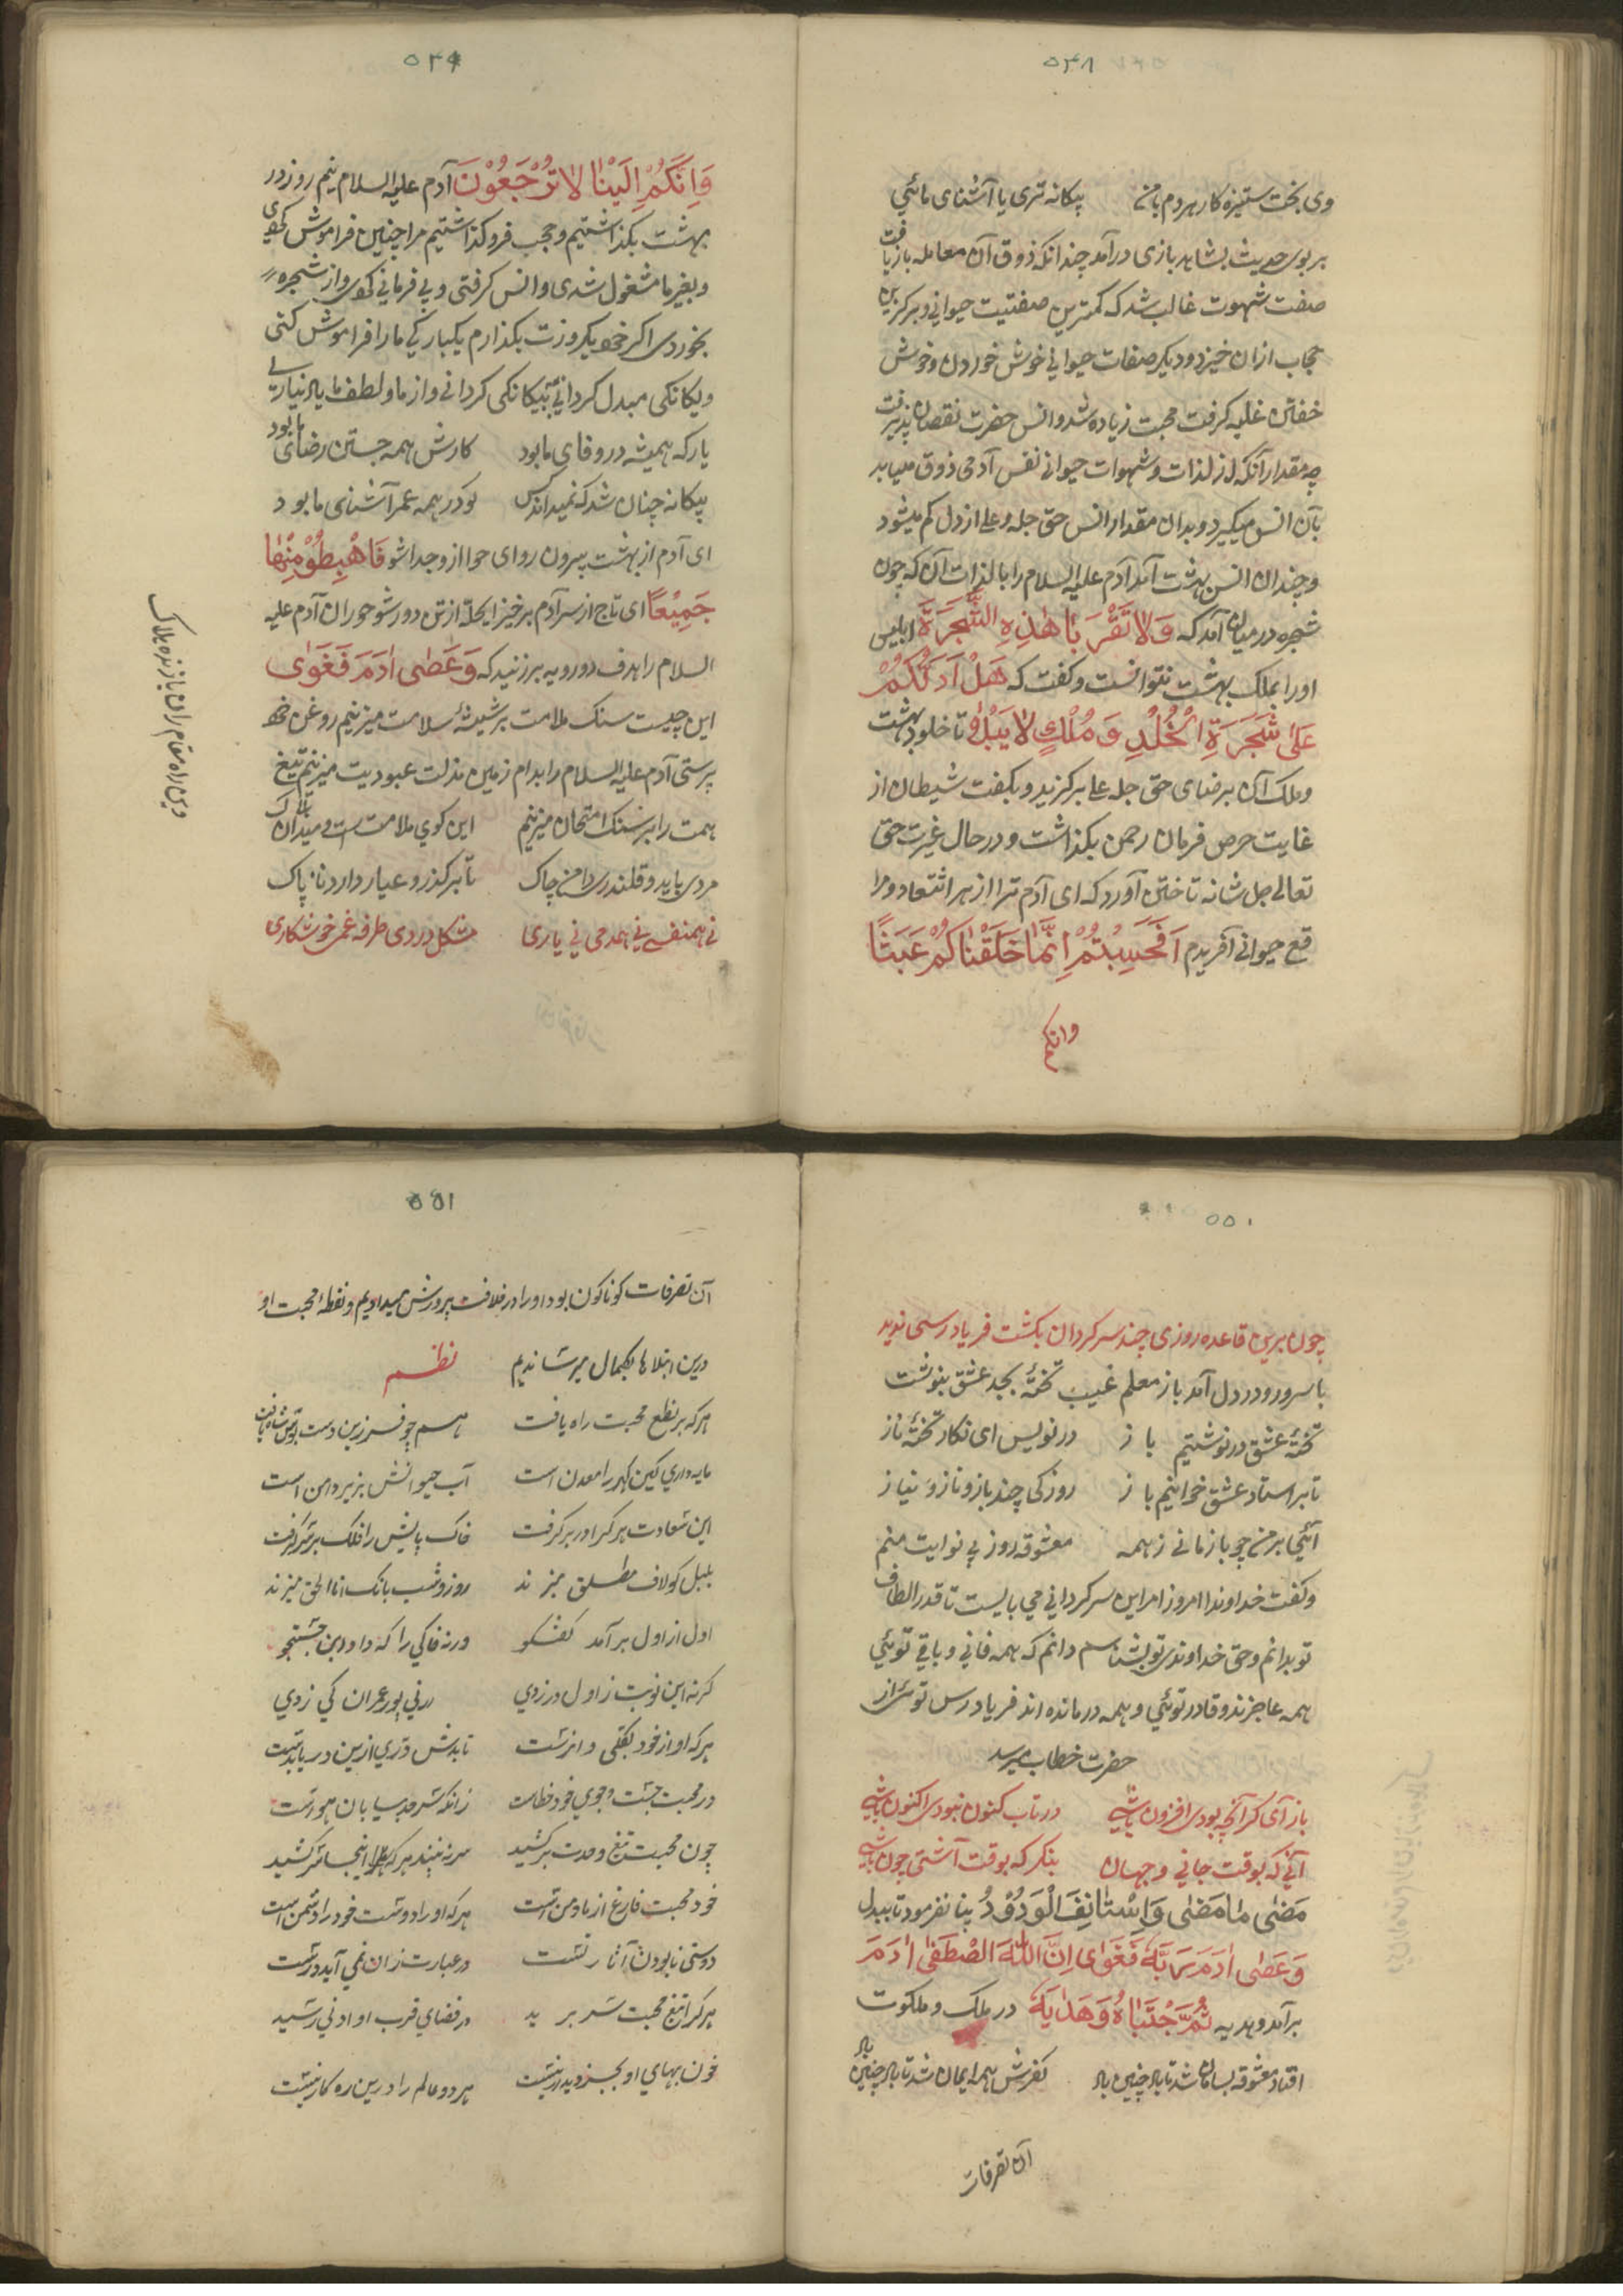 ٥٤٨
وی بخت ستیزه کار هر دم با من بیکانه تری یا آشنای مائی
بر بوی حدیث بشاهد بازی درآمد چندانکه ذوق آن معامله باز یافت
صفت شهوت غالب شد که کمترین صفتیت حیوانی و بزرکترین
حجاب ازان خیزد و دیکر صفات حیوانی خوش خوردن و خوش
خفتن غلبه کرفت محبت زیاده شد و انس حضرت نقصان پذیرفت
چه مقدار آنکه از لذات و شهوات حیوانی نفس آدمی ذوق مییابد
بآن انس میکیرد و بدان مقدار انس حق جل و علی از دل کم میشود
و چندان انس بهشت آمد آدم علیه السلام را با لذات آن که چون
شجره در میان آمد که وَلا تَقْرَبا هٰذِهِ الشَّجَرَةَ ابلیس
اورا بملک بهشت نتوانست و کفت که هَلْ اَدُلُّکُمْ
عَلیٰ شَجَرَةِ الْخُلْدِ وَ مُلْكٍ لا یَبْلیٰ تا خلود بهشت
و ملک آن بر رضای حق جل علی برکزید و بکفت شیطان از
غایت حرص فرمان رحمن بکذاشت و در حال غیرت حق
تعالی جل شانه تاختن آورد که ای آدم ترا از بهر اتتعاد و مرا
قع حیوانی آفریدم اَفَحَسِبْتُمْ اِنَّمٰا خَلَقْنٰاکُمْ عَبَثًا
وانکم
٥٤٩
وَاِنَّکُمْ اِلَیْنٰا لا تُرْجَعُوْنَ آدم علیه السلام نیم روز در
بهشت بکذاشتیم و حجب فروکذاشتیم مرا چنین فراموش کردی
و بغیر ما مشغول شدی و انس کرفتی و بی فرمانی کردی و از شجره
بخوردی اکر خود یکروزت بکذارم یکبارکی مارا فراموش کنی
و یکانکی مبدل کردانی بیکانکی کردانی و از ما و لطف ما یاد نیاری
یار که همیشه در وفای ما بود کارش همه جستن رضای ما بود
بیکانه چنان شد که نمیداند کس کو در همه عمر آشنای ما بود
ای آدم از بهشت بیرون رو ای حوا از و جدا شو فَاهْبِطُوْ مِنْها
جَمِیْعًا ای تاج از سر آدم برخیز ای حله از تن دور شو حوران آدم علیه
السلام را بدف دورویه برزنید که وَعَصٰی اٰدَمَ فَغَوٰی
این چیست سنک ملامت بر شیشهٔ سلامت میزنیم روغن خود
پرستی آدم علیه السلام را بدام زمین مذلت عبودیت میزنیم تیغ
همت را بر سنک امتحان میزنیم این کوی ملامت ست و میدان هلاک
مردی باید و قلندری دامن چاک تا برکذرد و عیار دارد ناپاک
نی همنفسی نی همدمی نی یاری مشکل دردی طرفه غمی خوش کاری
٥٥٠
چون برین قاعده روزی چند سرکردان بکشت فریاد رسی ندید
با سر درد دل آمد باز معلم غیب تختهٔ ابجد عشق بنوشت
تختهٔ عشق درنوشتیم باز در نویس ای نکار تختهٔ ناز
تا بر استاد عشق خوانیم باز روزکی چند باز و ناز و نیاز
آئی بر من چو بازمانی ز همه معشوقه روز بی نوایت منم
و کفت خداوندا امروز مرا این سرکردانی می بایست تا قدر الطاف
تو بدانم و حق خداوندی تو بشناسم دانم که همه فانی و باقی توئی
همه عاجزند و قادر توئی و همه درمانده اند فریادرس توئی از
حضرت خطاب میرسد
باز آی کز آنچه بودی افزون باشی در تاب کنون نبودی اکنون باشی
آنی که بوقت جانی و جهان بنکر که بوقت آشتی چون باشی
مَضٰی مٰا مَضٰی وَاسْتٰانِفَ الْوَدُوْدُ بنا نفرمود تا ببدل
وَعَصٰی اٰدَمَ رَبَّهُ فَغَوٰی اِنَّ اللّٰهَ الصْطَفٰی اٰدَمَ
برآمد و هدیه ثُمَّ جْتَبٰاهُ وَهَدٰایَهُ در ملک و ملکوت
افتاد معشوقه بسامان شد تا باد چنین باد کفرش همه ایمان شد تا باد چنین باد
آن تصرفات
٥٥١
آن تصرفات کوناکون بود اورا در خلافت پرورش میدادیم و نقطهٔ محبت او
درین ابتلاها بکمال میرساندیم نظم
هرکه بر نطع محبت راه یافت همچو فرزین دست بوس شاه یافت
مایه داری کین کهر را معدن است آب حیوانش بزیر دامن است
این سعادت هر کرا در بر کرفت خاک پایش را فلک بر سر کرفت
بلبل کو لاف مطلق میزند روز و شب بانک انا الحق میزند
اول از اول برآمد کفتکو ورنه خاکی را که داد این جستجو
کرنه این نوبت ز اول در زدی ارنی پور عمران کی زدی
هرکه او از خود بکلی وا نرست
در محبت جست و جوی خود خطاست زانکه سرحد بیابان هواست
چون محبت تیغ وحدت برکشید سر نه بیند هر که اینجا سر کشید
خود محبت فارغ از ما و من است هرکه او را دوست خود را دشمن است
دوستی نابودن آثار تست در عبارت زان نمی آید درست
هر کرا تیغ محبت سر برید در فضای قرب او ادنی رسید
خون بهای او بجز دیدار نیست هر دو عالم را درین ره کار نیست